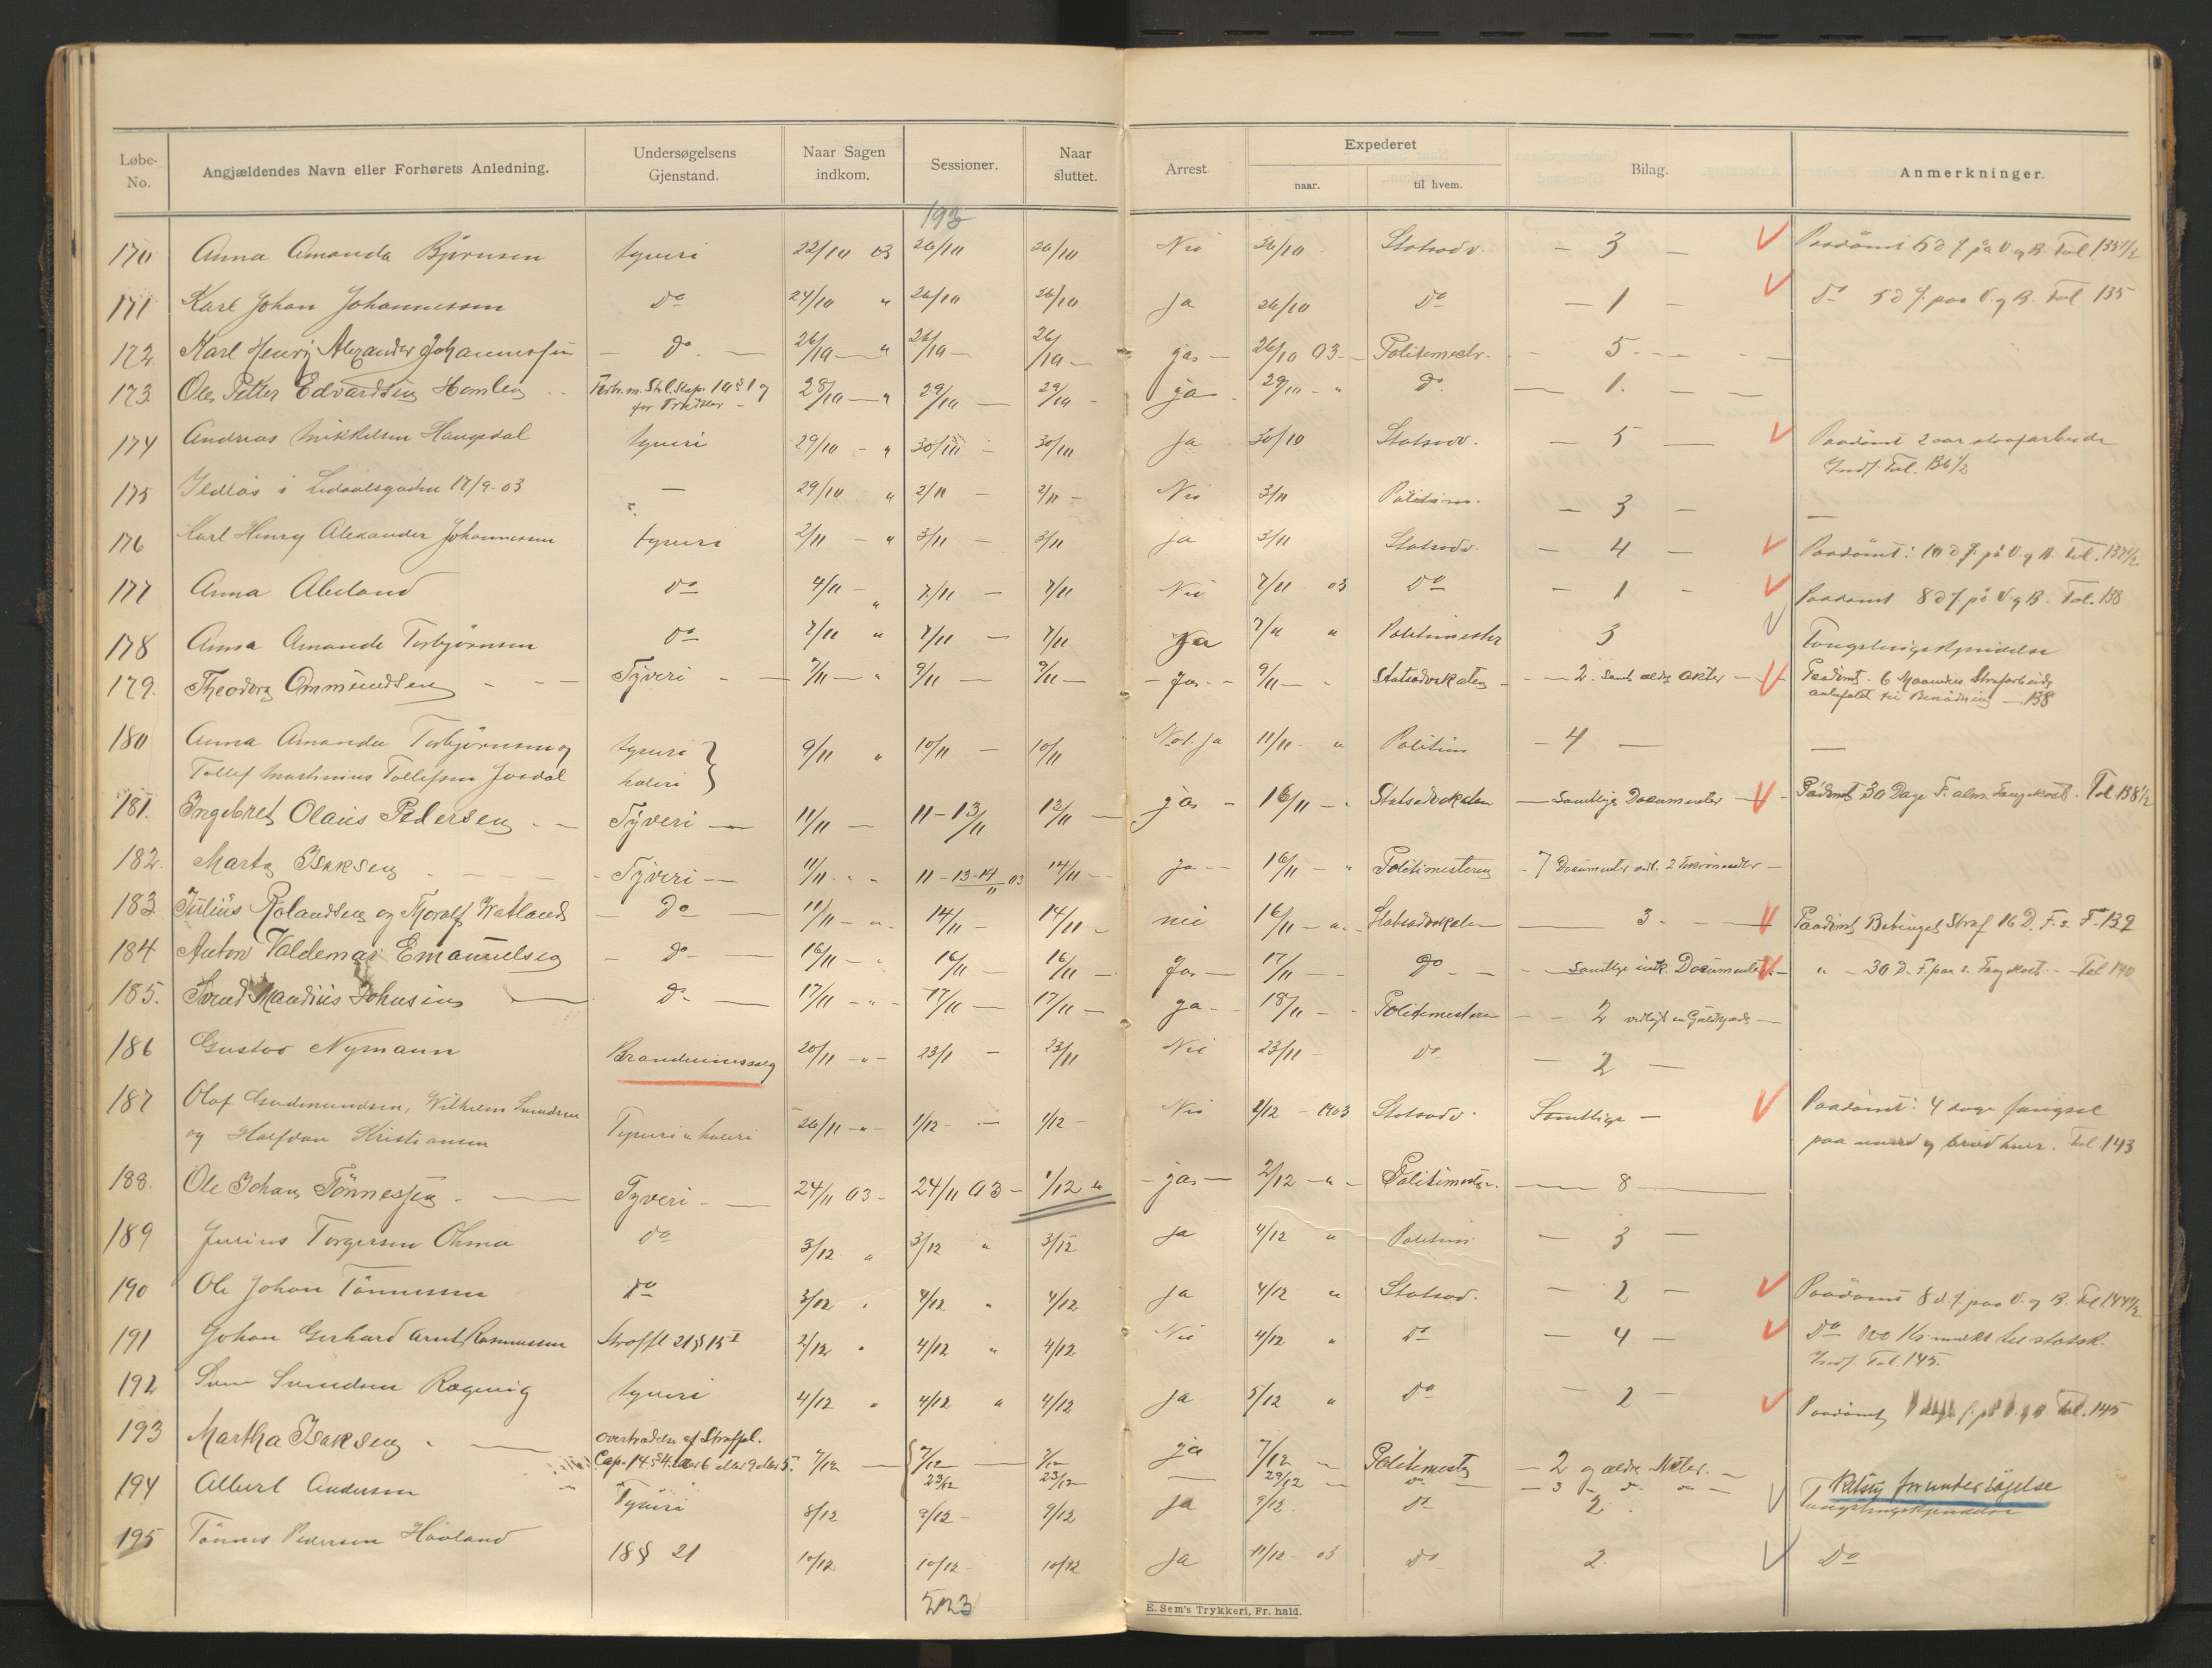 Løbe-No. Angjældendes Navn eller Forhørets Anledning. Undersøgelsens Gjenstand. Naar Sagen indkom. Sessioner. Naar sluttet. Arrest. Expederet naar. til hvem. Bilag. Anmerkninger.
170 Anna Amanda Bjørnsen tyveri 22/10 03 26/10 26/10 Nei 26/10 Statsadv. — 3 — Paadømt 5 d f på V. og B. Fol. 135 1/2
171 Karl Johan Johannessen do 24/10 " 26/10 26/10 Ja 26/10 do — 1 — do 5 d f. paa V. og B. Fol. 135
172 Karl Henrij Alexander Johannessen — do — 26/10 — " 26/10 — 26/10 — ja — 26/10 03 — Politimestr. 5
173. Ole Petter Edvardsen Homlen 1 og for Trudsler 28/10 — " 29/10 — 29/10 ja 29/10 — " do — 1. —
174 Andreas Mikkelsen Haugsdal tyveri 29/10 — " 30/10 — 30/10 Ja 30/10 Statsadv. — 5 — Paadømt 2 aar strafarbeide
Indf. Fol. 136 1/2
175 Ildløs i 17/9-03 — 29/10 " 2/11 — 2/11 — Nei 3/11 Politim. — 3 — —
176 Karl Henry Alexander Johannessen tyveri 2/11 — " 3/11 — 3/11 Ja 3/11 Statsadv. — 4 — Paadømt: 10 d f. på V. og B. Fol. 137 1/2
177 Anna Abeland do 4/11 — " 7/11 — 7/11 Nei 7/11 03 do — 1 — Paadømt 8 d f på V. og B. Fol. 138
178 Anna Amanda Torbjørnsen do 7/11 " 7/11 — 7/11 Ja 7/11 " Politimester 3 Tvangslingskjendelse
179. Theodor Ommundsen — Tyveri — 7/11 — " 9/11 — 9/11 — ja — 9/11 — " Statsadvokaten — 2. samt ældre Akter — Paadømt. 6 Maaneders Strafarbeide
anbefalet til Benådning — 138
180 Anna Amanda Torbjørnsen og tyveri 9/11 " 10/11 — 10/11 ja 11/11 " Politim — 4 — —
Tollef Martinius Tollefsen Josdal hæleri
181. Ingebret Olaus Pedersen — Tyveri — 11/11 — 11-13/11 13/11 — ja — 16/11 — " Statsadvokaten — Samtlige Documenter — Paadømt 30 Dage F. alm. Fangekost. Fol 138 1/2
182. Marta Isaksen — Tyveri — 11/11 — " 11-13-14/11 03 14/11 — ja — 16/11 — " Politimesteren — 7 Documenter —
183 Julius Rolandsen og Thoralf Watland — do — 11/11 — " 14/11 — 14/11 — nei 16/11 — " Statsadvokaten — 3. — Paadømt Betinget Straf 16 D. F. F. 139
184 Anton Valdemar Emanuelsen — do — 16/11 — " 16/11 — 16/11 — Ja — 17/11 — do — Samtlige Documenter — " — 30 D. F. paa s. Fangekost — Fol 140
185. Svend Mandius Johnsen — do — 17/11 — " 17/11 — 17/11 — ja — 18/11 — " Politimesteren — 2
186 Gustav Nymann 20/11 — " — 23/11 — 23/11 Nei 23/11 do — 2 —
187 Olaf Gudmundsen, Wilhelm Svendsen Tyveri & hæleri 26/11 — " — 1/12 — 1/12 — Nei 2/12 — 1903 Statsadv. Samtlige — Paadømt: 4 dage fængsel
og Halfdan Kristiansen paa vand og brød hver. Fol 143
188. Ole Johan Tönnessen — Tyveri — 24/11 03 — 24/11 03 — 1/12 " — ja — 2/12 — " — Politimester. — 8 —
189 Julius Torgersen Ohma do 3/12 " 3/12 " 3/12 Ja 4/12 " Politim — 3 —
190 Ole Johan Tönnessen do 3/12 " 4/12 " 4/12 Ja 4/12 " Statsad. — 2 — Paadømt 8 d. f. paa V. og B. Fol 144 1/2
191 Johan Gerhard Arnt Rasmussen Straffl 21 § 15 2/12 " 4/12 " 4/12 Nei 4/12 " do — 4 — do 100 Kr mulkt til statsk.
Indf. Fol. 145.
192 Sven Svendsen Rægevig tyveri 4/12 " 4/12 " 4/12 Ja 5/12 " do — 2 — Paadømt Fol. 145
193 Martha Isaksen — Overtrædelse af Straffel. Cap. 14 § 4 7/12 — 7/12 — 7/12 ja 7/12 " Politimester — 2 og ældre Akter. —
23/12 23/12 29/12 — 3 Retslig forundersögelse
194 Albert Andersen Tyveri 8/12 9/12 — 9/12 Ja 9/12 do 2. Tvangslingskjendelse
195 Tønnes Pedersen Hovland 18 § 21 10/12 10/12 — 10/12 Ja 11/12 03 do 2. do
523
E. Sem's Trykkeri, Fr. hald.